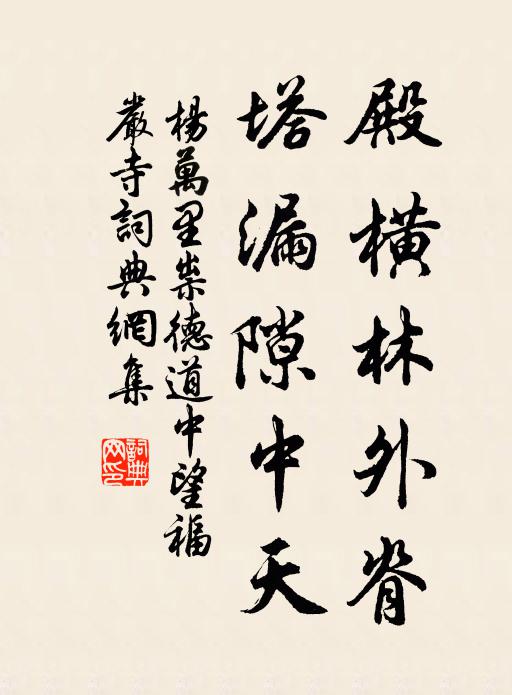 殿橫林外脊
塔漏隙中天
楊萬里崇德道中望福
嚴寺詞典網集
詞典
网印